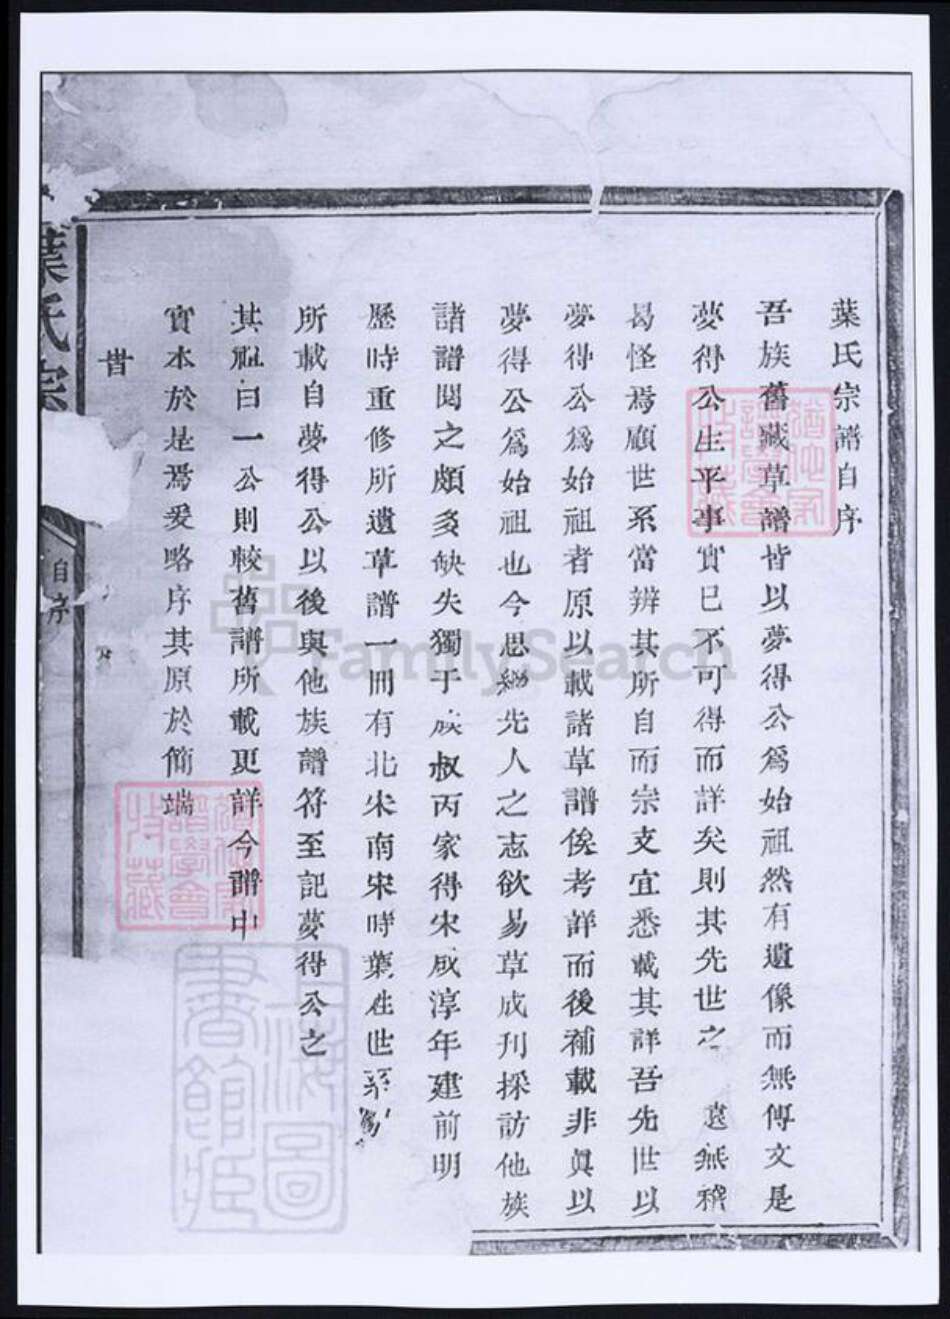 葉氏宗譜自序
吾族舊藏草譜皆以夢得公爲始祖然有遺像而無傳文是
夢得公生平事實已不可得而詳矣則其先世之遠無稽
曷怪焉顧世系當辨其所自而宗支宜悉載其詳吾先世以
夢得公爲始祖者原以載諸草譜俟考詳而後補載非眞以
夢得公爲始祖也今思繼先人之志欲易草成刋採訪他族
諸譜閱之頗多缺失獨于族叔丙家得宋咸淳年建前明
歷時重修所遺草譜一冊有北宋南宋時葉姓世系
所載自夢得公以後與他族譜符至記夢得公之
其祖曰一公則較舊譜所載更詳今譜中
實本於是焉爰略序其原於簡端
旹
葉氏宗
自序
猶他家譜學會收藏
猶他家譜學會收藏
上海圖書館藏
FamilySearch